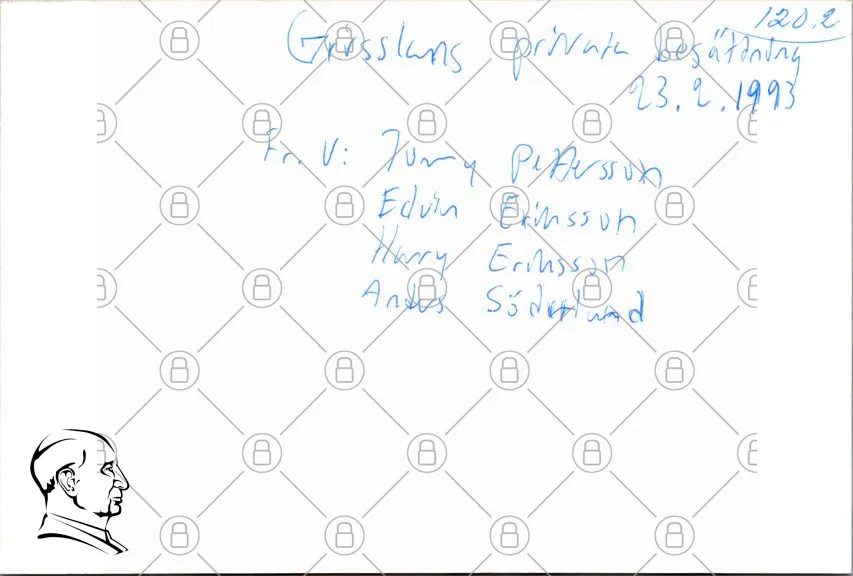 120.2
Grisslans privata besättning
23.2.1993
Fr. V: Jumy Pettersson
Edvin Eriksson
Harry Eriksson
Anders Söderlund